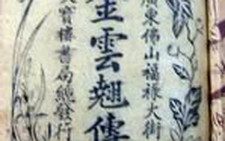 廣東佛山福祿大街
金雲翹傳
天寶樓書局總發行